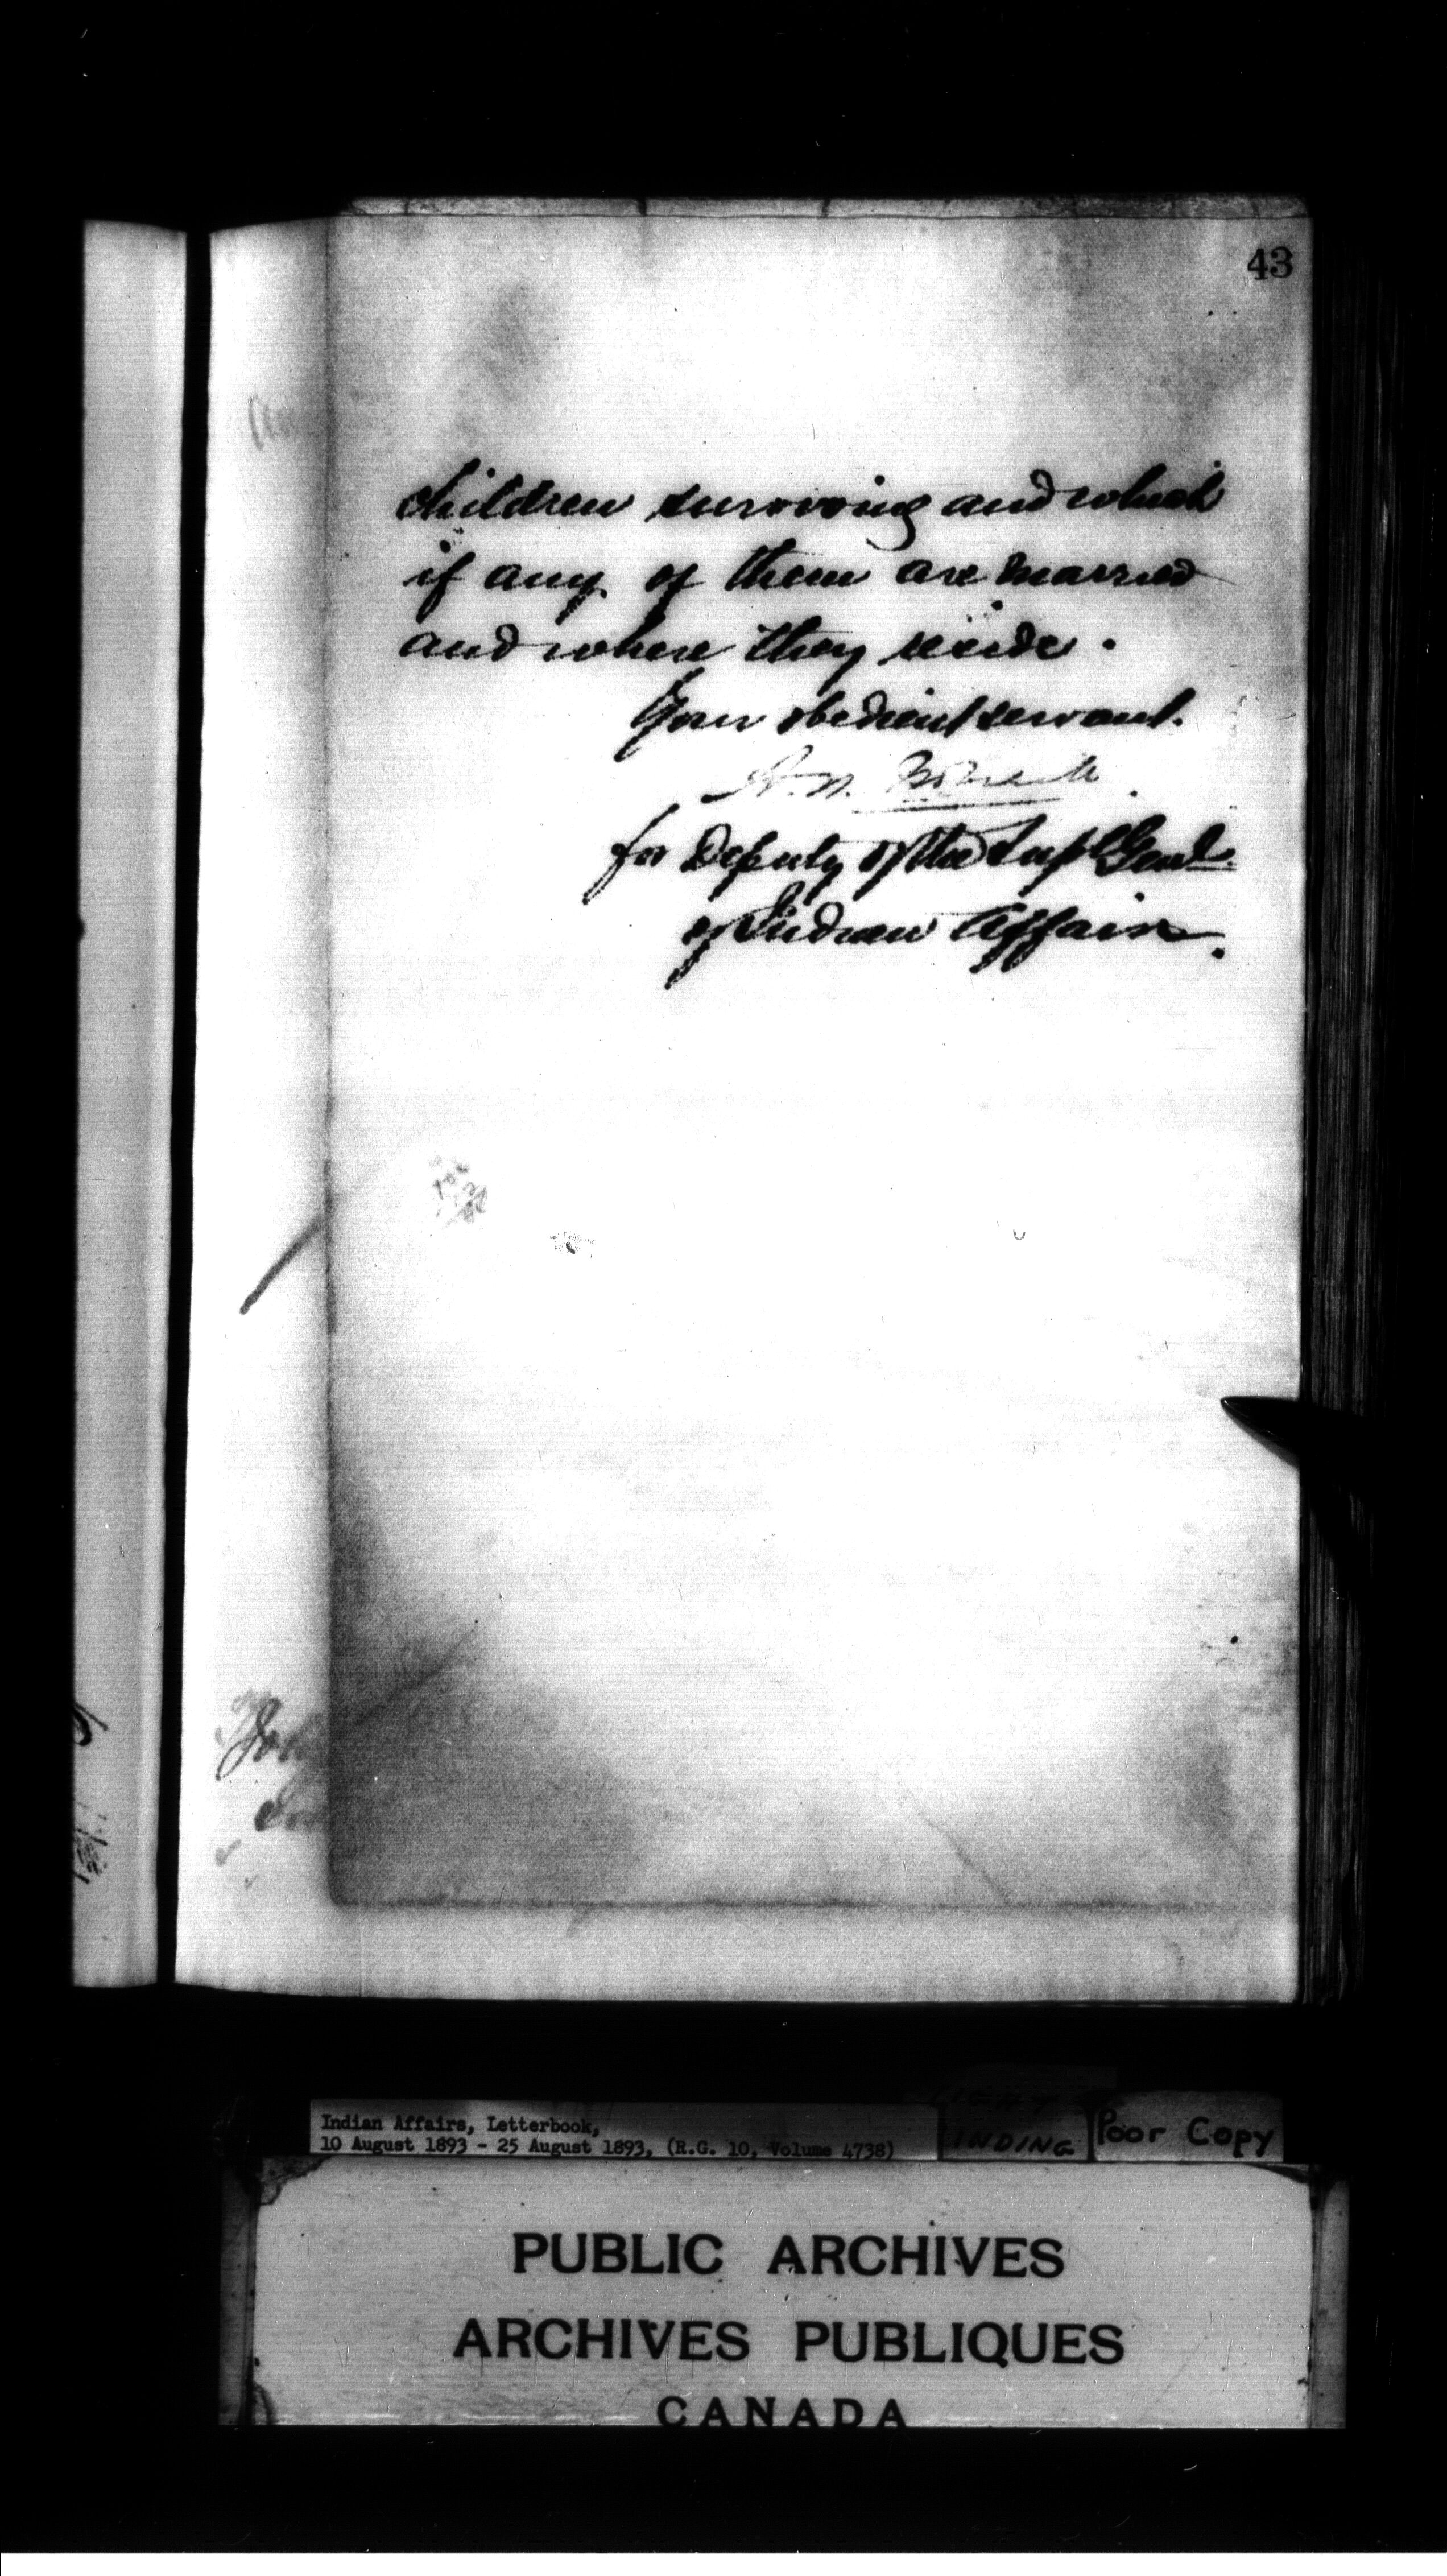 43
children surviving and which
if any of them are married
and where they reside.
Your obedient servant.
for Deputy of the Supt Genl.
of Indian Affairs.
Indian Affairs, Letterbook,
10 August 1893 - 25 August 1893, (R.G. 10, Volume 4738)
BINDING
Poor Copy
PUBLIC ARCHIVES
ARCHIVES PUBLIQUES
CANADA